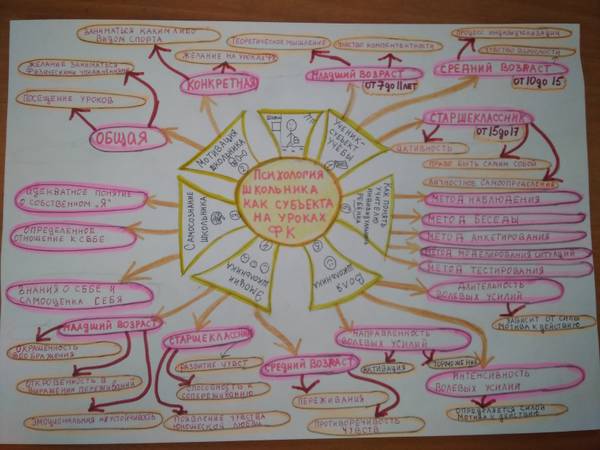 ЗАНИМАТЬСЯ КАКИМ-ЛИБО
ВИДОМ СПОРТА
ЖЕЛАНИЕ НА УРОКЕ ФК
КОНКРЕТНАЯ
ЖЕЛАНИЕ ЗАНИМАТЬСЯ
ФИЗИЧЕСКИМИ УПРАЖНЕНИЯМИ
ПОСЕЩЕНИЕ УРОКОВ
ОБЩАЯ
ТЕОРЕТИЧЕСКОЕ МЫШЛЕНИЕ
ЧУВСТВО КОМПЕТЕНТНОСТИ
МЛАДШИЙ ВОЗРАСТ
ОТ 7 ДО 11 ЛЕТ
ПРОЦЕСС ИНДИВИДУАЛИЗАЦИИ
ЧУВСТВО ВЗРОСЛОСТИ
СРЕДНИЙ ВОЗРАСТ
ОТ 10 ДО 15
СТАРШЕКЛАССНИК
ОТ 15 ДО 17
АКТИВНОСТЬ
ПРАВО БЫТЬ САМИМ СОБОЙ
ЛИЧНОСТНОЕ САМООПРЕДЕЛЕНИЕ
МОТИВАЦИЯ
ШКОЛЬНИКА
УЧЕНИК-
СУБЪЕКТ
УЧЕБЫ
ПСИХОЛОГИЯ
ШКОЛЬНИКА
КАК СУБЪЕКТА
НА УРОКАХ
ФК
КАК ПОНЯТЬ
УЧИТЕЛЮ
ИНДИВИДУАЛЬНОСТЬ
РЕБЕНКА
САМОСОЗНАНИЕ
ШКОЛЬНИКА
ЭМОЦИИ
ШКОЛЬНИКА
ВОЛЯ
ШКОЛЬНИКА
АДЕКВАТНОЕ ПОНЯТИЕ
О СОБСТВЕННОМ "Я"
ОПРЕДЕЛЕННОЕ
ОТНОШЕНИЕ К СЕБЕ
ЗНАНИЯ О СЕБЕ И
САМООЦЕНКА СЕБЯ
МЕТОД НАБЛЮДЕНИЯ
МЕТОД БЕСЕДЫ
МЕТОД АНКЕТИРОВАНИЯ
МЕТОД МОДЕЛИРОВАНИЯ СИТУАЦИЙ
МЕТОД ТЕСТИРОВАНИЯ
ДЛИТЕЛЬНОСТЬ
ВОЛЕВЫХ УСИЛИЙ
ЗАВИСИТ ОТ СИЛЫ
МОТИВА К ДЕЙСТВИЮ
МЛАДШИЙ ВОЗРАСТ
ОКРАШЕННОСТЬ
ВООБРАЖЕНИЯ
ОТКРОВЕННОСТЬ В
ВЫРАЖЕНИИ ПЕРЕЖИВАНИЙ
ЭМОЦИОНАЛЬНАЯ НЕУСТОЙЧИВОСТЬ
СТАРШЕКЛАССНИК
РАЗВИТИЕ ЧУВСТ
СПОСОБНОСТЬ К
СОПЕРЕЖИВАНИЮ
ПОЯВЛЕНИЕ ЧУВСТВА
ЮНОШЕСКОЙ ЛЮБВИ
СРЕДНИЙ ВОЗРАСТ
ПЕРЕЖИВАНИЯ
ПРОТИВОРЕЧИВОСТЬ
ЧУВСТВ
НАПРАВЛЕННОСТЬ
ВОЛЕВЫХ УСИЛИЙ
АКТИВАЦИЯ
ТОРМОЖЕНИЕ
ИНТЕНСИВНОСТЬ
ВОЛЕВЫХ УСИЛИЙ
ОПРЕДЕЛЯЕТСЯ СИЛОЙ
МОТИВА К ДЕЙСТВИЮ